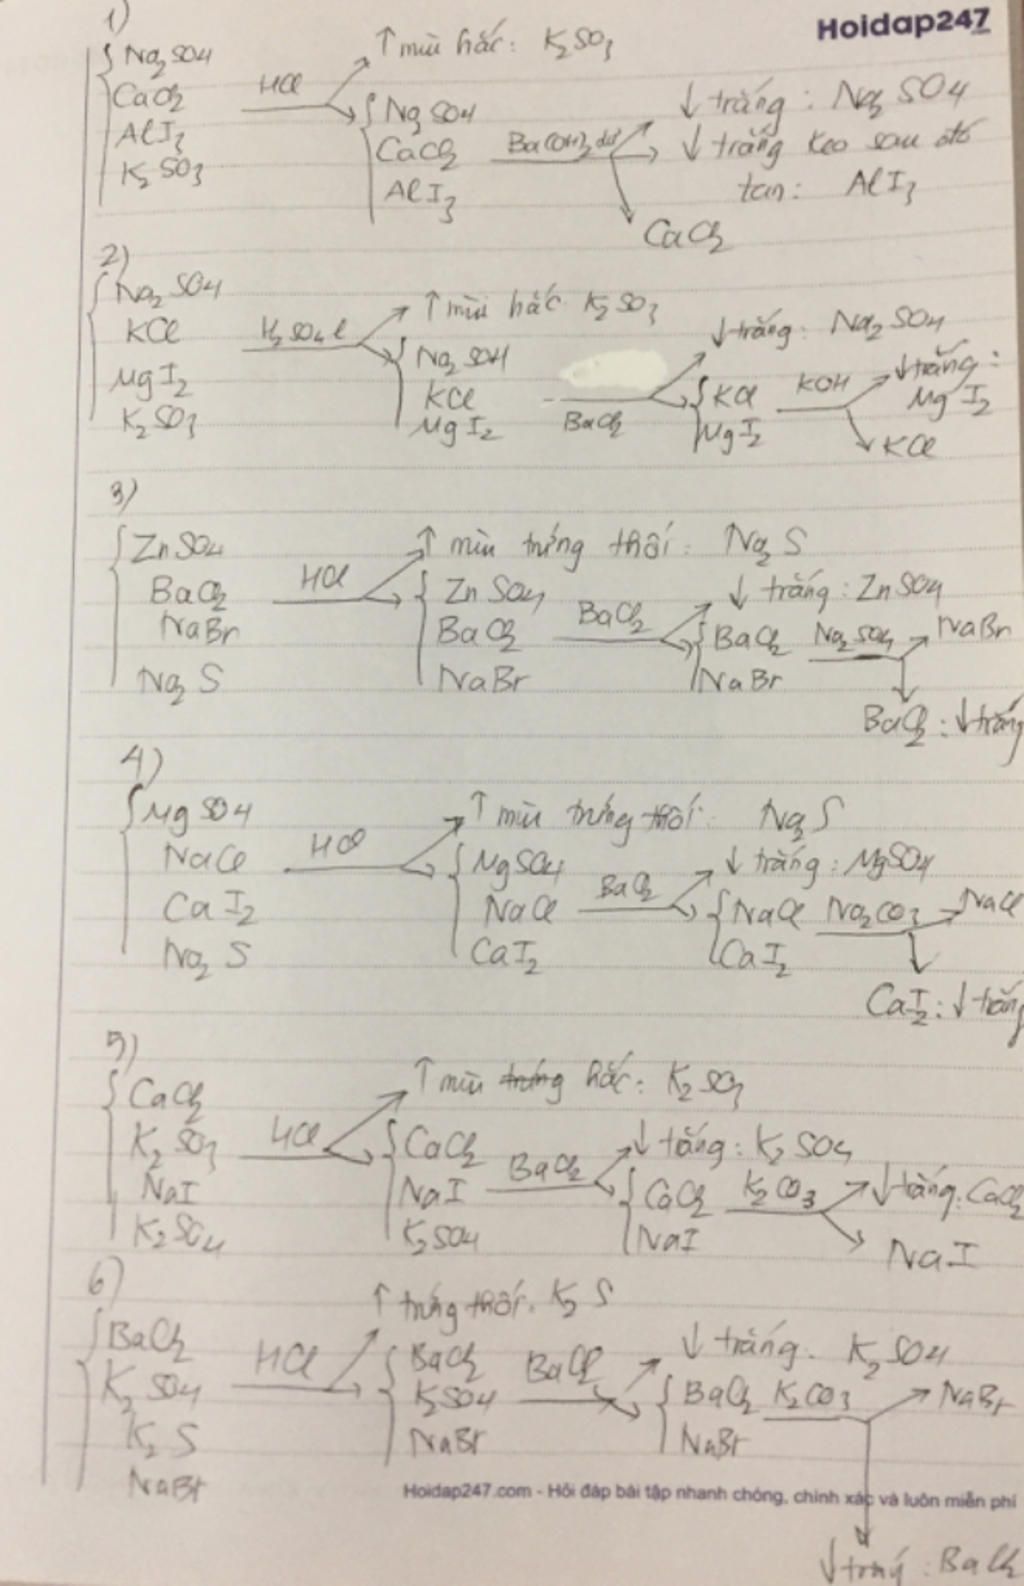 Hoidap247
1)
Na2SO4
CaCl2
AlI3
K2SO3
HCl
↑ mùi hắc: K2SO3
Na2SO4
CaCl2
AlI3
Ba(OH)2 dư
↓ trắng: Na2SO4
↓ trắng keo sau đó
tan: AlI3
CaCl2
2)
Na2SO4
KCl
MgI2
K2SO3
H2SO4 l
↑ mùi hắc K2SO3
Na2SO4
KCl
MgI2
BaCl2
↓ trắng: Na2SO4
KCl
MgI2
KOH
↓ trắng:
MgI2
KCl
3)
ZnSO4
BaCl2
NaBr
Na2S
HCl
↑ mùi trứng thối: Na2S
ZnSO4
BaCl2
NaBr
BaCl2
↓ trắng: ZnSO4
BaCl2
NaBr
Na2SO4
NaBr
BaCl2: ↓ trắng
4)
MgSO4
NaCl
CaI2
Na2S
HCl
↑ mùi trứng thối: Na2S
MgSO4
NaCl
CaI2
BaCl2
↓ trắng: MgSO4
NaCl
CaI2
Na2CO3
NaCl
CaI2: ↓ trắng
5)
CaCl2
K2SO3
NaI
K2SO4
HCl
↑ mùi trứng hắc: K2SO3
CaCl2
NaI
K2SO4
BaCl2
↓ tắng: K2SO4
CaCl2
NaI
K2CO3
↓ trắng: CaCl2
NaI
6)
BaCl2
K2SO4
K2S
NaBr
HCl
↑ trứng thối: K2S
BaCl2
K2SO4
NaBr
BaCl2
↓ trắng: K2SO4
BaCl2
NaBr
K2CO3
NaBr
Hoidap247.com - Hỏi đáp bài tập nhanh chóng, chính xác và luôn miễn phí
↓ trắng: BaCl2